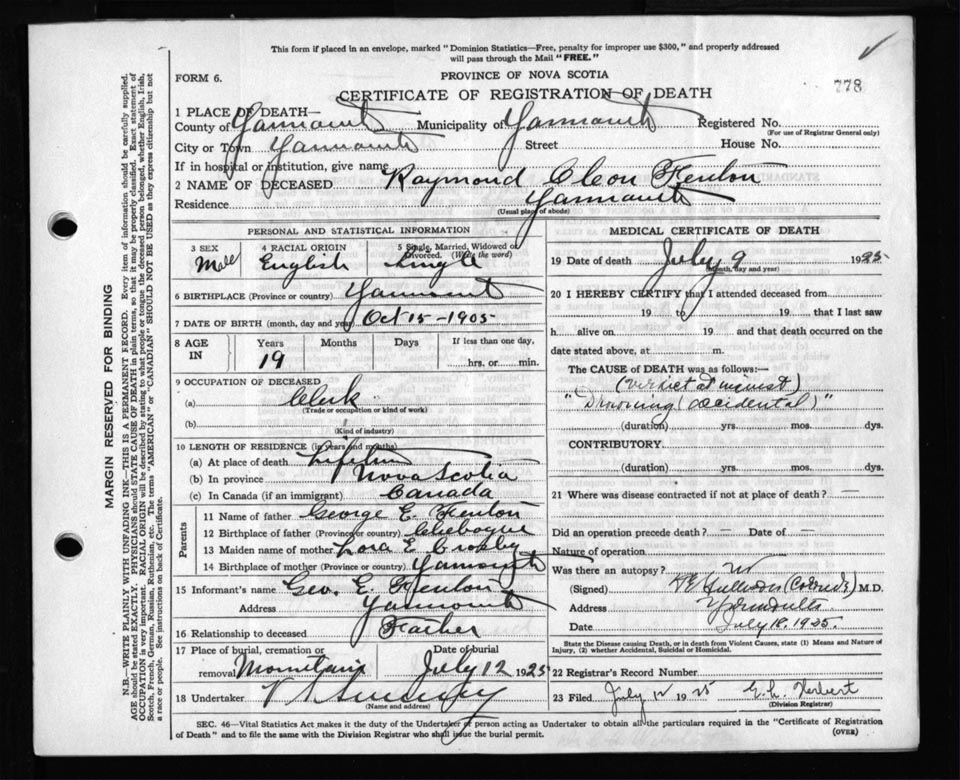 This form if placed in an envelope, marked "Dominion Statistics—Free, penalty for improper use $300," and properly addressed
will pass through the Mail "FREE."
FORM 6.
PROVINCE OF NOVA SCOTIA
778
CERTIFICATE OF REGISTRATION OF DEATH
1 PLACE OF DEATH—
County of Yarmouth Municipality of Yarmouth Registered No.
(For use of Registrar General only)
City or Town Yarmouth Street House No.
If in hospital or institution, give name
2 NAME OF DECEASED Raymond Cleon Fenton
Residence Yarmouth
(Usual place of abode)
PERSONAL AND STATISTICAL INFORMATION
3 SEX 4 RACIAL ORIGIN 5 Single, Married, Widowed or Divorced. (Write the word)
Male English Single
6 BIRTHPLACE (Province or country) Yarmouth
7 DATE OF BIRTH (month, day and year) Oct 15-1905
8 AGE IN Years Months Days If less than one day,
19 hrs. or min.
9 OCCUPATION OF DECEASED
(a) Clerk
(Trade or occupation or kind of work)
(b)
(Kind of industry)
10 LENGTH OF RESIDENCE (in years and months)
(a) At place of death Lifetime
(b) In province Nova Scotia
(c) In Canada (if an immigrant) Canada
Parents
11 Name of father George E. Fenton
12 Birthplace of father (Province or country) Chebogue
13 Maiden name of mother Lora E Crosby
14 Birthplace of mother (Province or country) Yarmouth
15 Informant's name Geo. E. Fenton
Address Yarmouth
16 Relationship to deceased Father
17 Place of burial, cremation or removal Mountain Date of burial July 12 1925
18 Undertaker
(Name and address)
MEDICAL CERTIFICATE OF DEATH
19 Date of death July 9 1925
(Month, day and year)
20 I HEREBY CERTIFY that I attended deceased from
19 to 19 that I last saw
h alive on 19 and that death occurred on
date stated above, at m.
The CAUSE of DEATH was as follows:—
(Verdict at inquest)
"Drowning (accidental)"
(duration) yrs. mos. dys.
CONTRIBUTORY.
(duration) yrs. mos. dys.
21 Where was disease contracted if not at place of death? —
Did an operation precede death? — Date of —
Nature of operation
Was there an autopsy?
(Signed) M.D.
Address
Date July 18, 1925.
State the Disease causing Death, or in death from Violent Causes, state (1) Means and Nature of
Injury, (2) whether Accidental, Suicidal or Homicidal.
22 Registrar's Record Number
23 Filed July 12 1925 Herbert
(Division Registrar)
SEC. 46—Vital Statistics Act makes it the duty of the Undertaker or person acting as Undertaker to obtain all the particulars required in the "Certificate of Registration
of Death" and to file the same with the Division Registrar who shall issue the burial permit.
(OVER)
MARGIN RESERVED FOR BINDING
N.B.—WRITE PLAINLY WITH UNFADING INK—THIS IS A PERMANENT RECORD. Every item of information should be carefully supplied.
AGE should be stated EXACTLY. PHYSICIANS should STATE CAUSE OF DEATH in plain terms, so that it may be properly classified. Exact statement of
OCCUPATION is very important. RACIAL ORIGIN will be described by stating to what people or tongue the deceased person belonged, whether English, Irish,
Scotch, French, German, Russian, Ruthenian, etc. The terms "AMERICAN" or "CANADIAN" SHOULD NOT BE USED as they express citizenship but not
a race or people. See instructions on back of Certificate.